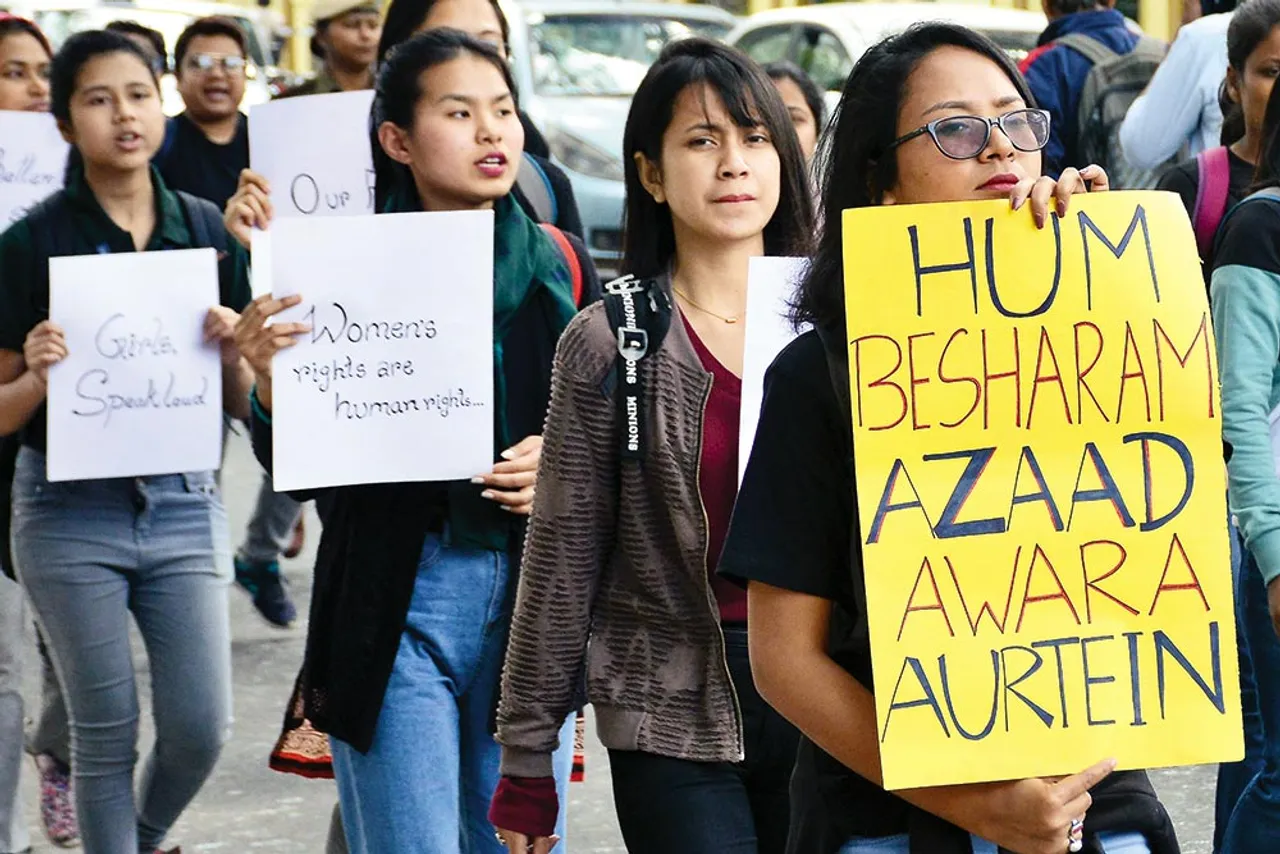 Girls
Speak loud
Our
Women's
rights are
human rights...
MINIONS
MINIONS
HUM
BESHARAM
AZAAD
AWARA
AURTEIN